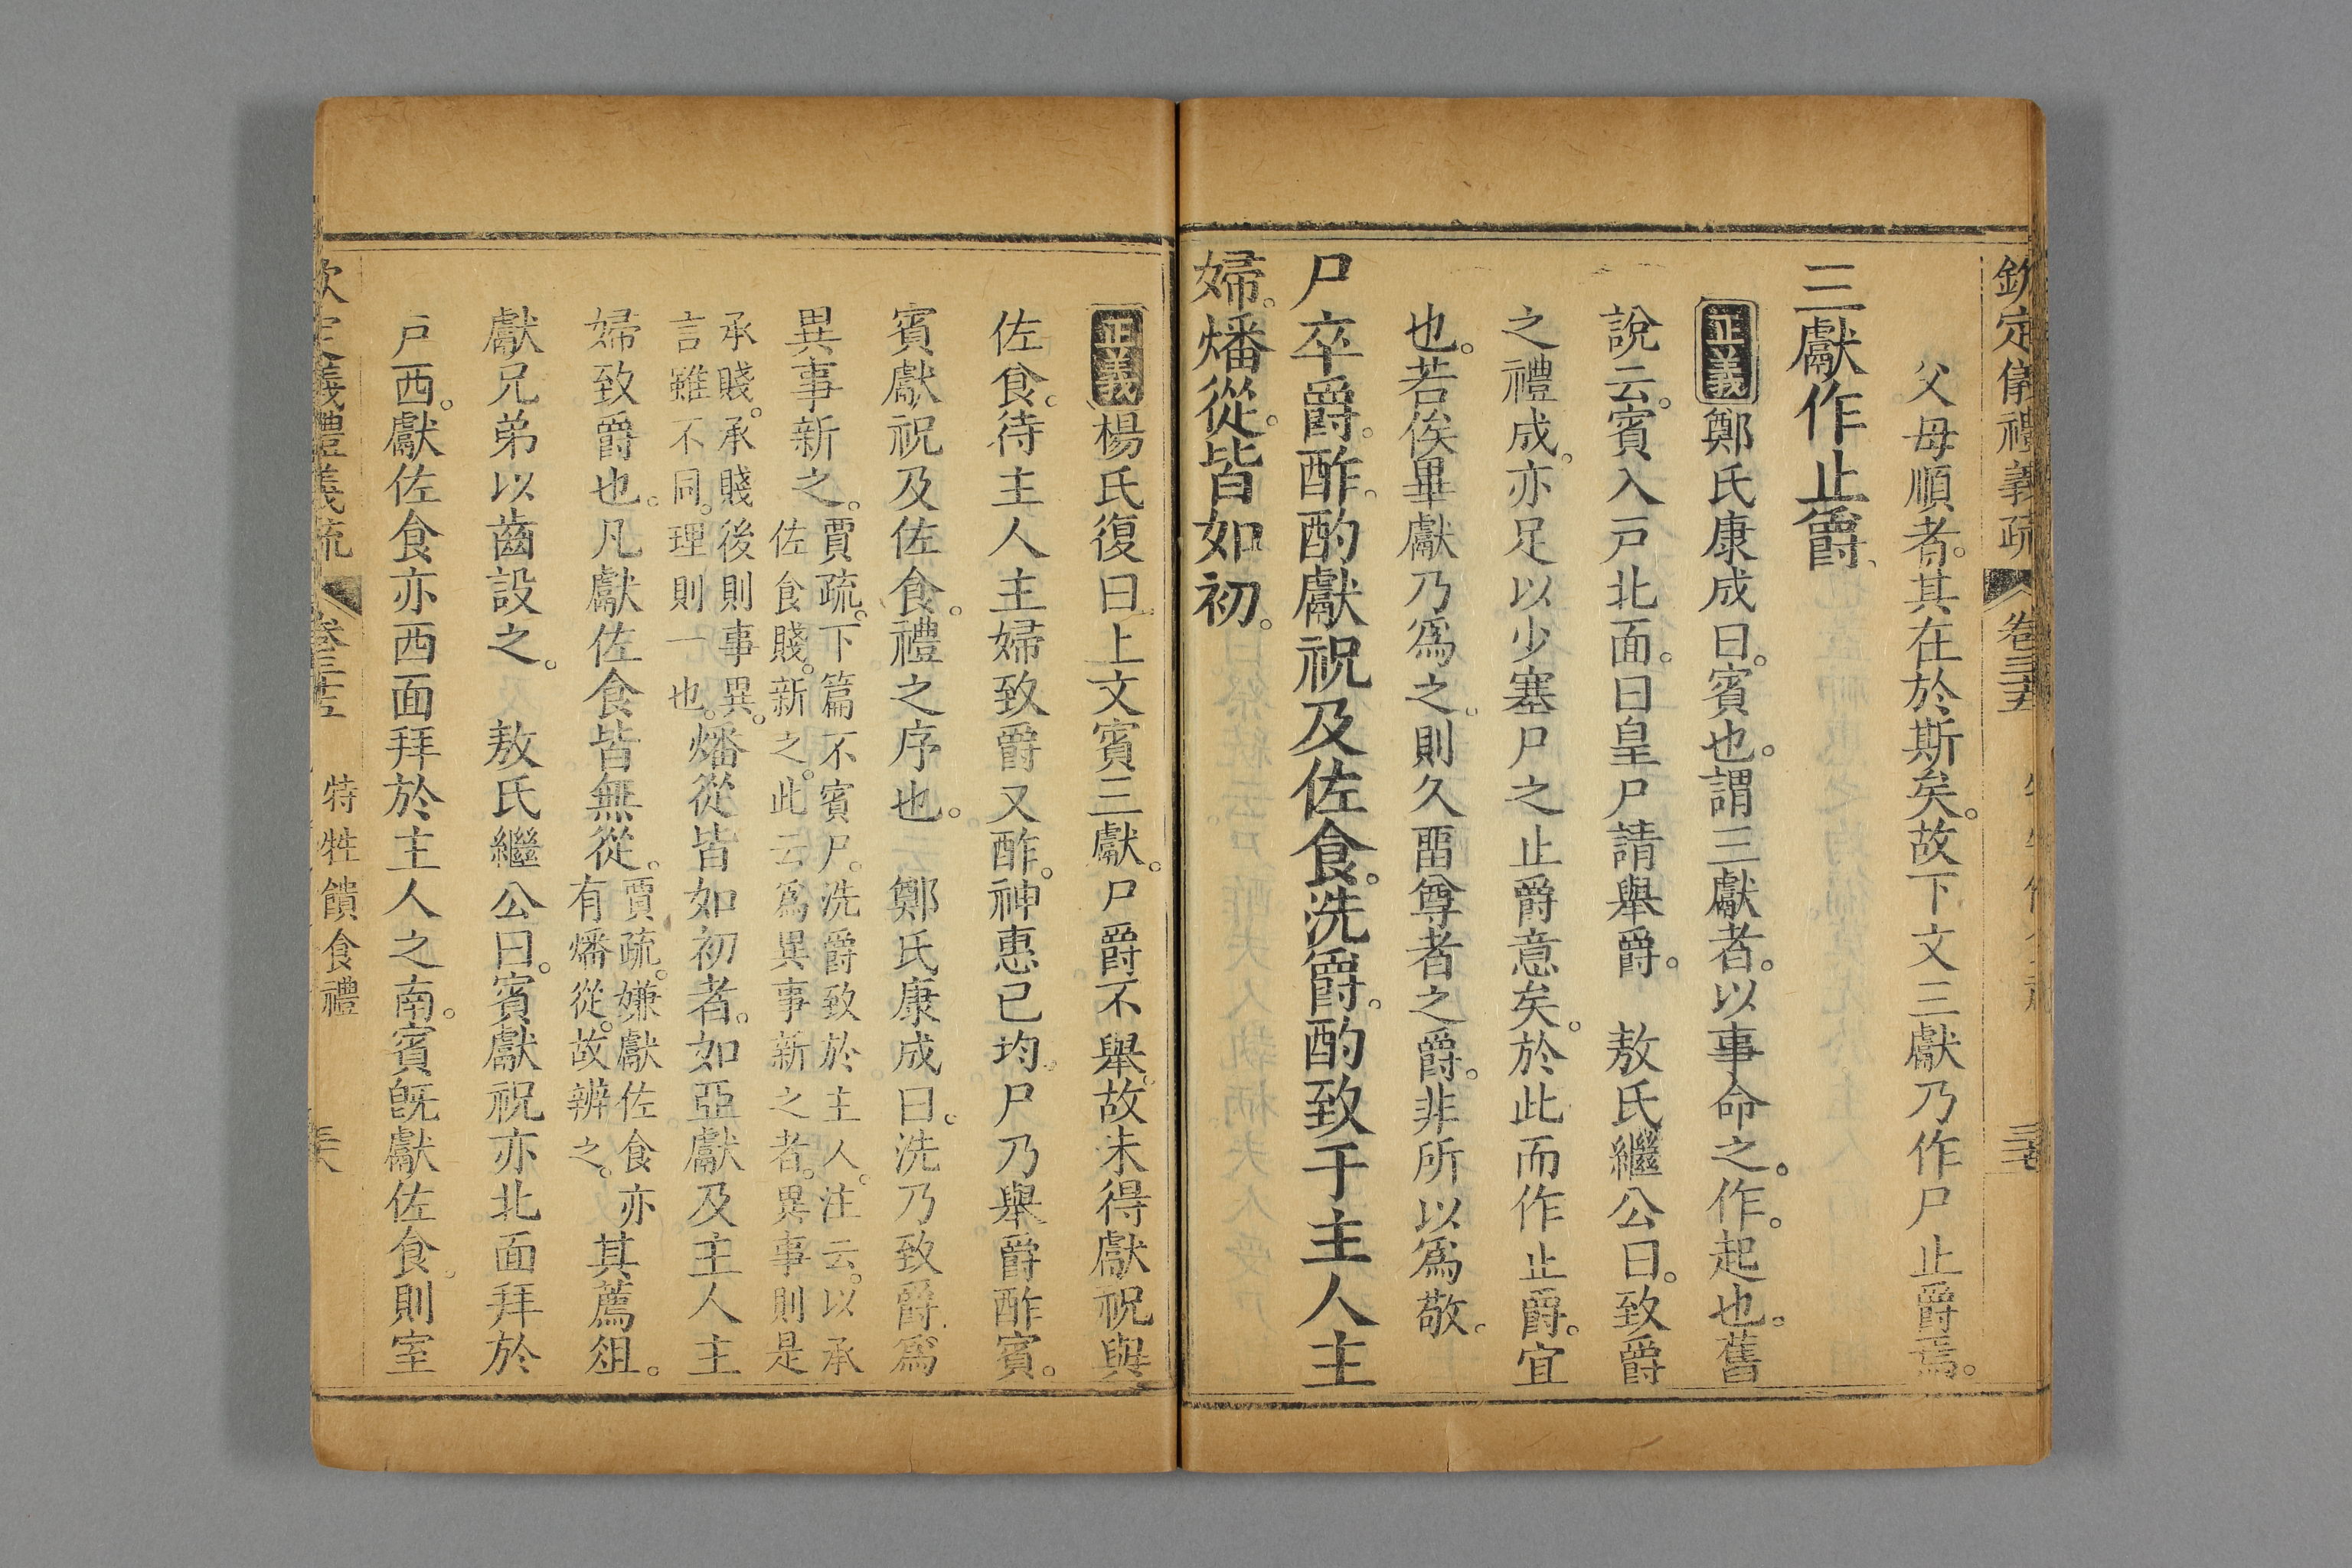 欽定儀禮義疏 卷三十五
父母順者其在於斯矣故下文三獻乃作尸止爵焉
三獻作止爵
正義鄭氏康成曰賓也謂三獻者以事命之作起也舊
說云賓入戸北面曰皇尸請舉爵 敖氏繼公曰致爵
之禮成亦足以少塞尸之止爵意矣於此而作止爵宜
也若俟畢獻乃爲之則久畱尊者之爵非所以爲敬
尸卒爵酢酌獻祝及佐食洗爵酌致于主人主
婦燔從皆如初
正義楊氏復曰上文賓三獻尸爵不舉故未得獻祝與
佐食待主人主婦致爵又酢神惠已均尸乃舉爵酢賓
賓獻祝及佐食禮之序也 鄭氏康成曰洗乃致爵爲
異事新之賈疏下篇不賓尸洗爵致於主人注云以承佐食賤新之此云爲異事新之者異事則是
承賤承賤後則事異言雖不同理則一也燔從皆如初者如亞獻及主人主
婦致爵也凡獻佐食皆無從賈疏嫌獻佐食亦有燔從故辨之其薦俎
獻兄弟以齒設之 敖氏繼公曰賓獻祝亦北面拜於
戸西獻佐食亦西面拜於主人之南賓旣獻佐食則室
欽定義禮義疏 卷三十五 特牲饋食禮